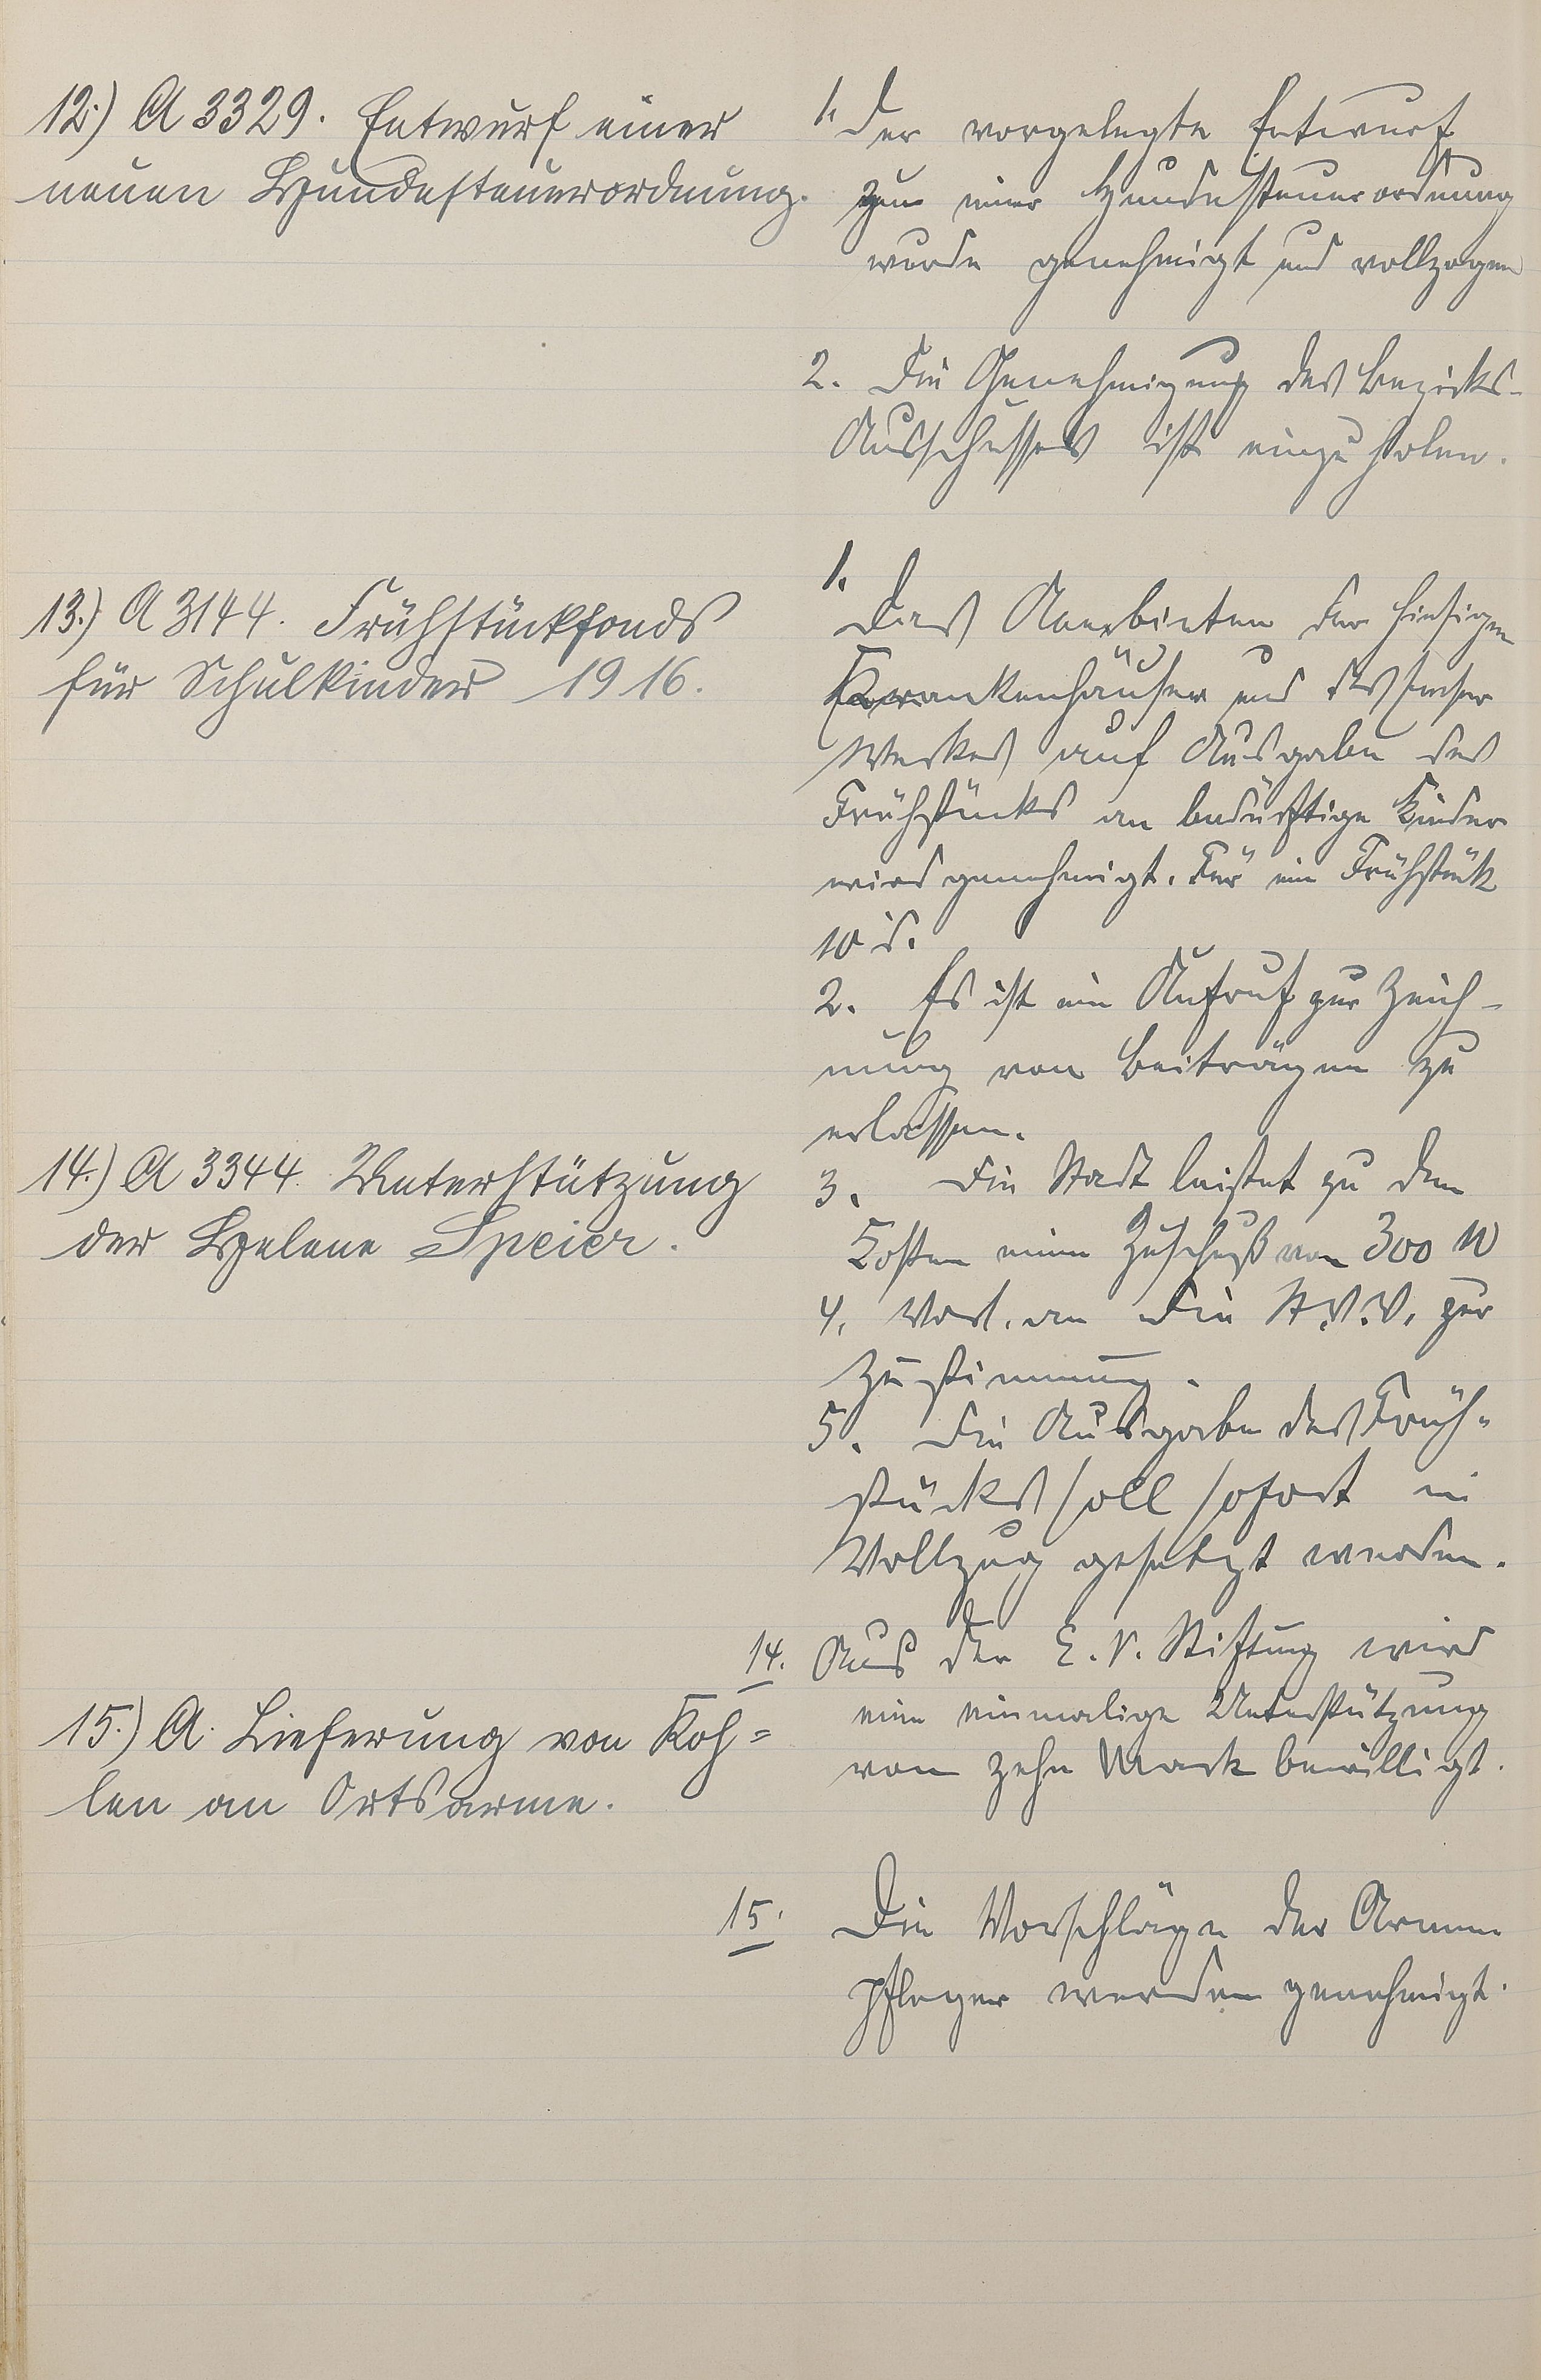 12.) A 3329. Entwurf einer
neuen Hundesteuerordnung.
1. Der vorgelegte Entwurf
zu einer Hundesteuerordnung
wurde genehmigt und vollzogen
2. Die Genehmigung des Bezirks-
Ausschusses ist einzuholen.
13.) A 3144. Frühstückfonds
für Schulkinder 1916.
1.
Das Anerbieten der hiesigen
Krankenhäuser und des
Werkes auf Ausgabe des
Frühstücks an bedürftige Kinder
wird genehmigt. Für ein Frühstück
10 d.
2. Es ist ein Aufruf zur Zeich-
nung von Beiträgen zu
erlassen.
3. Die Stadt leistet zu den
Kosten einen Zuschuß von 300 M
4. Vorl. an die St.V.V. zur
Zustimmung.
5. Die Ausgabe des Früh-
stücks soll sofort in
Vollzug gesetzt werden.
14.) A 3344. Unterstützung
der Helene Speier.
14. Aus der E. V. Stiftung wird
eine einmalige Unterstützung
von zehn Mark bewilligt.
15.) A. Lieferung von Koh=
len an Ortsarme.
15. Die Vorschläge der Armen
pfleger werden genehmigt.